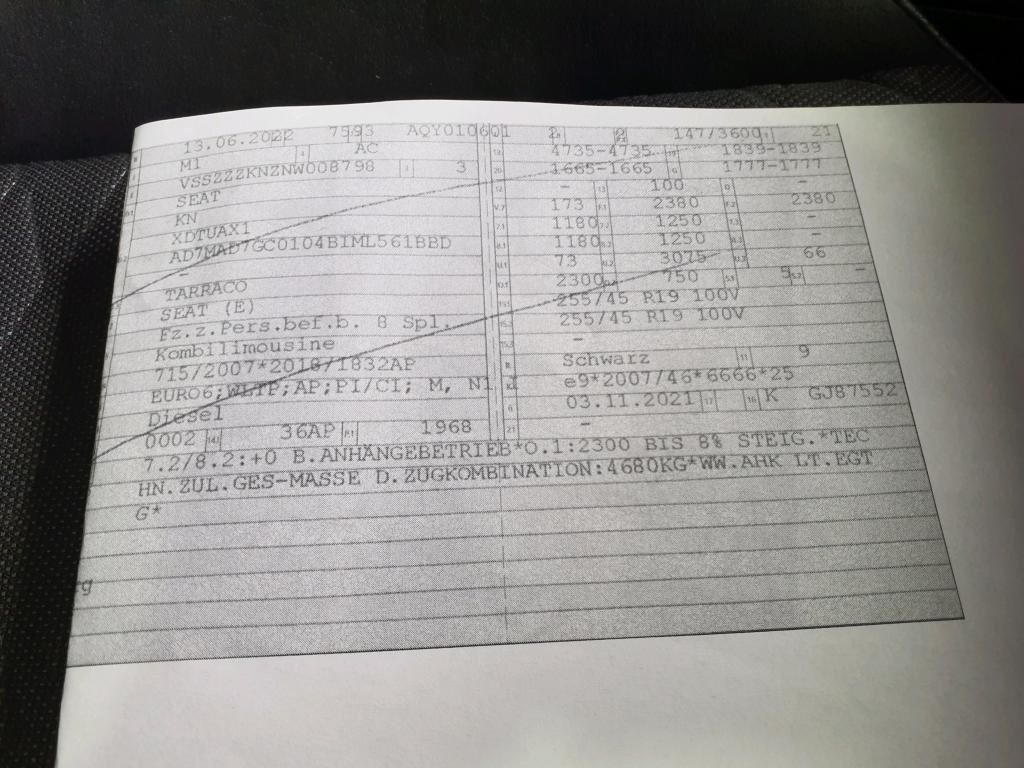 13.06.2022 7593 AQY010601 2 2 147/3600 21
M1 AC 4735-4735 1839-1839
VSSZZZKNZNW008798 3 1665-1665 1777-1777
SEAT - 100 -
KN 173 2380 2380
XDTUAX1 1180 1250 -
AD7MAD7GC0104BIML561BBD 1180 1250 -
- 73 3075 66
TARRACO 2300 750 5 -
SEAT (E) 255/45 R19 100V
Fz.z.Pers.bef.b. 8 Spl. 255/45 R19 100V
Kombilimousine -
715/2007*2018/1832AP Schwarz 9
EURO6;WLTP;AP;PI/CI; M, N1 e9*2007/46*6666*25
Diesel 03.11.2021 K GJ87552
0002 36AP 1968 -
7.2/8.2:+0 B.ANHÄNGEBETRIEB*O.1:2300 BIS 8% STEIG.*TEC
HN.ZUL.GES-MASSE D.ZUGKOMBINATION:4680KG*WW.AHK LT.EGT
G*